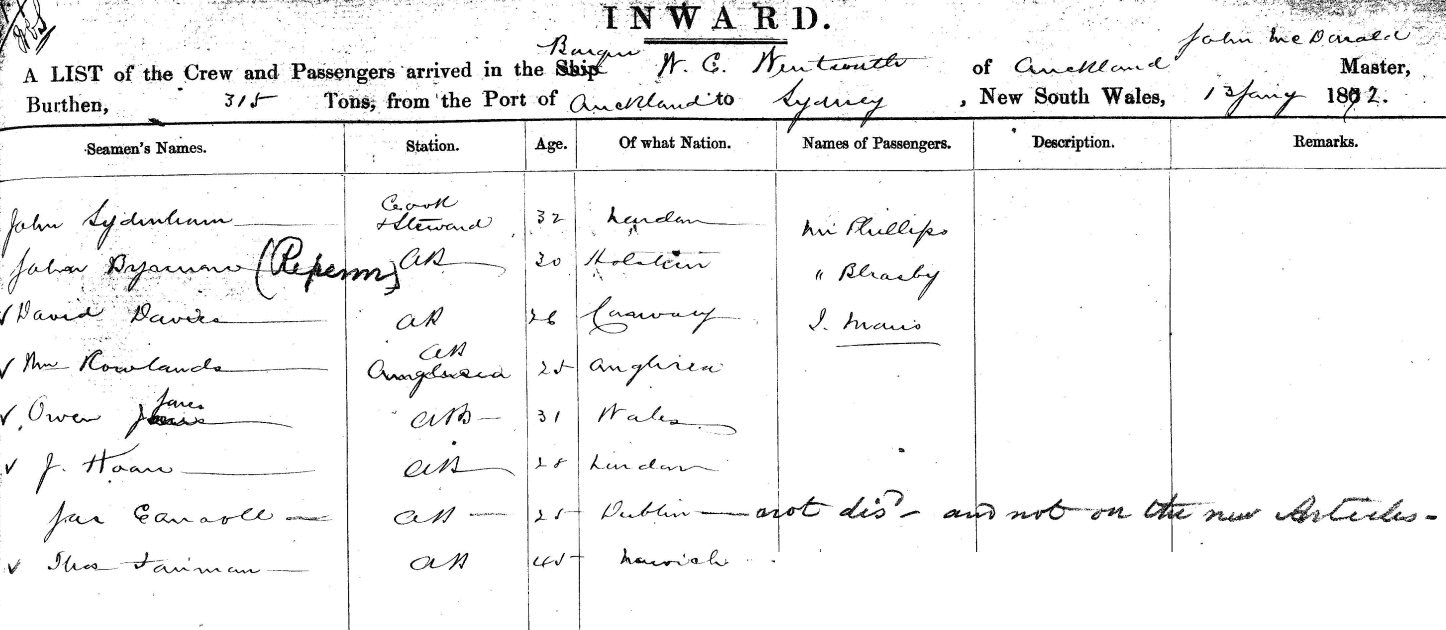 INWARD.
Barque John McDonald
A LIST of the Crew and Passengers arrived in the Ship W. C. Wentworth of Auckland Master,
Burthen, 315 Tons, from the Port of Auckland to Sydney, New South Wales, 13 Jany 1872.
Seamen's Names. Station. Age. Of what Nation. Names of Passengers. Description. Remarks.
John Sydenham Cook & Steward 32 London Mr Phillips
John (Reperm) AB 30 Holstein " Blrasby
David Davies AB 26 Conway J.
Wm Rowlands AB Anglesea 25 Anglesea
Owen Jones AB 31 Wales
J. Hoare AB 28 London
Jas Carroll AB 25 Dublin not disd - and not on the new Articles -
Thos Fairman AB 45 Norwich